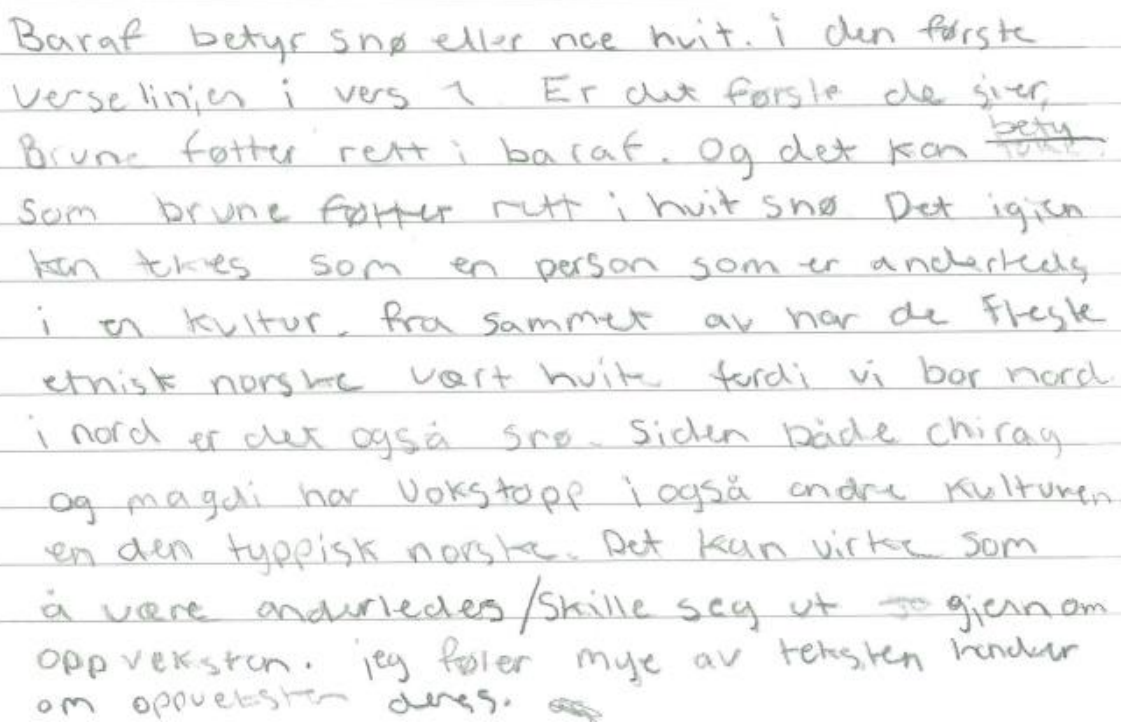 Baraf betyr snø eller noe hvit. i den første
verselinjen i vers 1 Er det første de sier,
Brune føtter rett i baraf. Og det kan bety
som brune føtter rett i hvit snø Det igjen
kan tkes som en person som er anderleds
i en kultur. fra sammet av har de fleste
etnisk norske vært hvite fordi vi bor nord.
i nord er det også snø. Siden både chirag
og magdi har vokstopp i også andre kulturen
en den typpisk norske. Det kan virke som
å være anderledes/skille seg ut gjennom
oppveksten. jeg føler mye av teksten
om oppveksten deres.